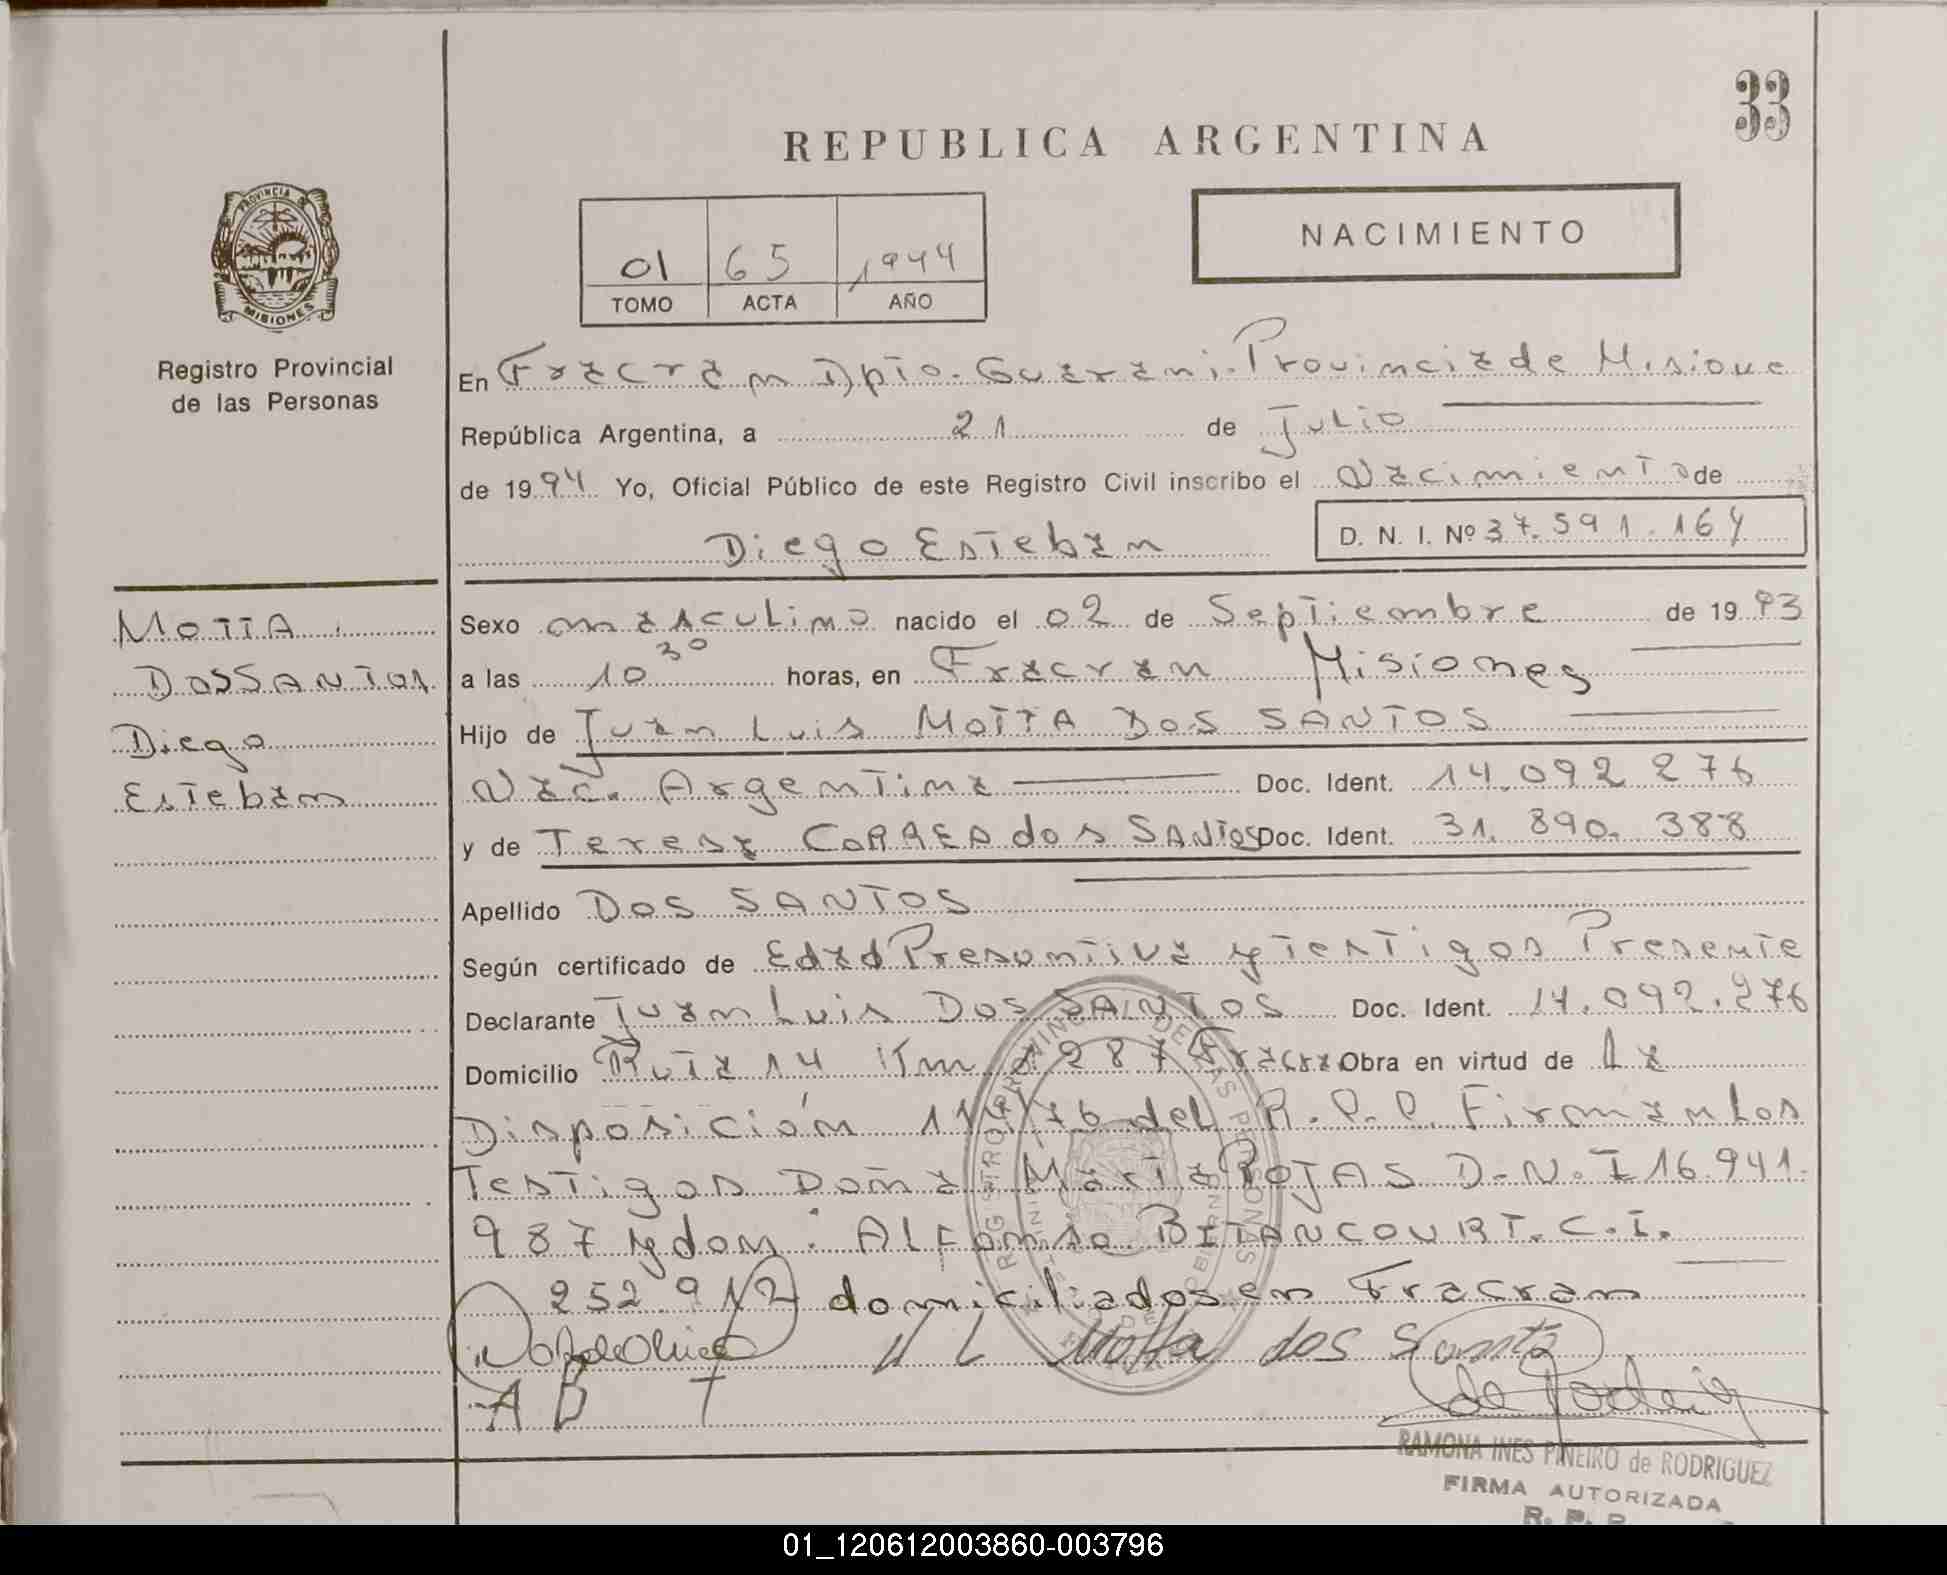 33
REPUBLICA ARGENTINA
NACIMIENTO
01 65 1994
TOMO ACTA AÑO
PROVINCIA DE
MISIONES
Registro Provincial
de las Personas
En Fracran Dpto. Guarani. Provincia de Misione
República Argentina, a 21 de Julio
de 1994 Yo, Oficial Público de este Registro Civil inscribo el Nacimiento de
Diego Esteban D. N. I. Nº 37.591.164
MOTTA
DOSSANTOS
Diego
Esteban
Sexo masculino nacido el 02 de Septiembre de 1993
a las 10 30 horas, en Fracran Misiones
Hijo de Juan Luis MOTTA DOS SANTOS
Nac. Argentina Doc. Ident. 14.092.276
y de Teresa CORREA dos SANTOS Doc. Ident. 31.890.388
Apellido DOS SANTOS
Según certificado de Edad Presuntiva y Testigos Presente
Declarante Juan Luis DOS SANTOS Doc. Ident. 14.092.276
Domicilio Ruta 14 Km 1287 Fracra Obra en virtud de La
Disposición 11 /76 del R.P.P. Firman Los
Testigos Doña Maria ROJAS D.N.I 16.941.
987 y don: ALFonso BITANCOURT. C.I.
252.912 domiciliados en Fracran
Motta dos Santo
A B T
RAMONA INES PIÑEIRO de RODRIGUEZ
FIRMA AUTORIZADA
R. P. P.
01_120612003860-003796